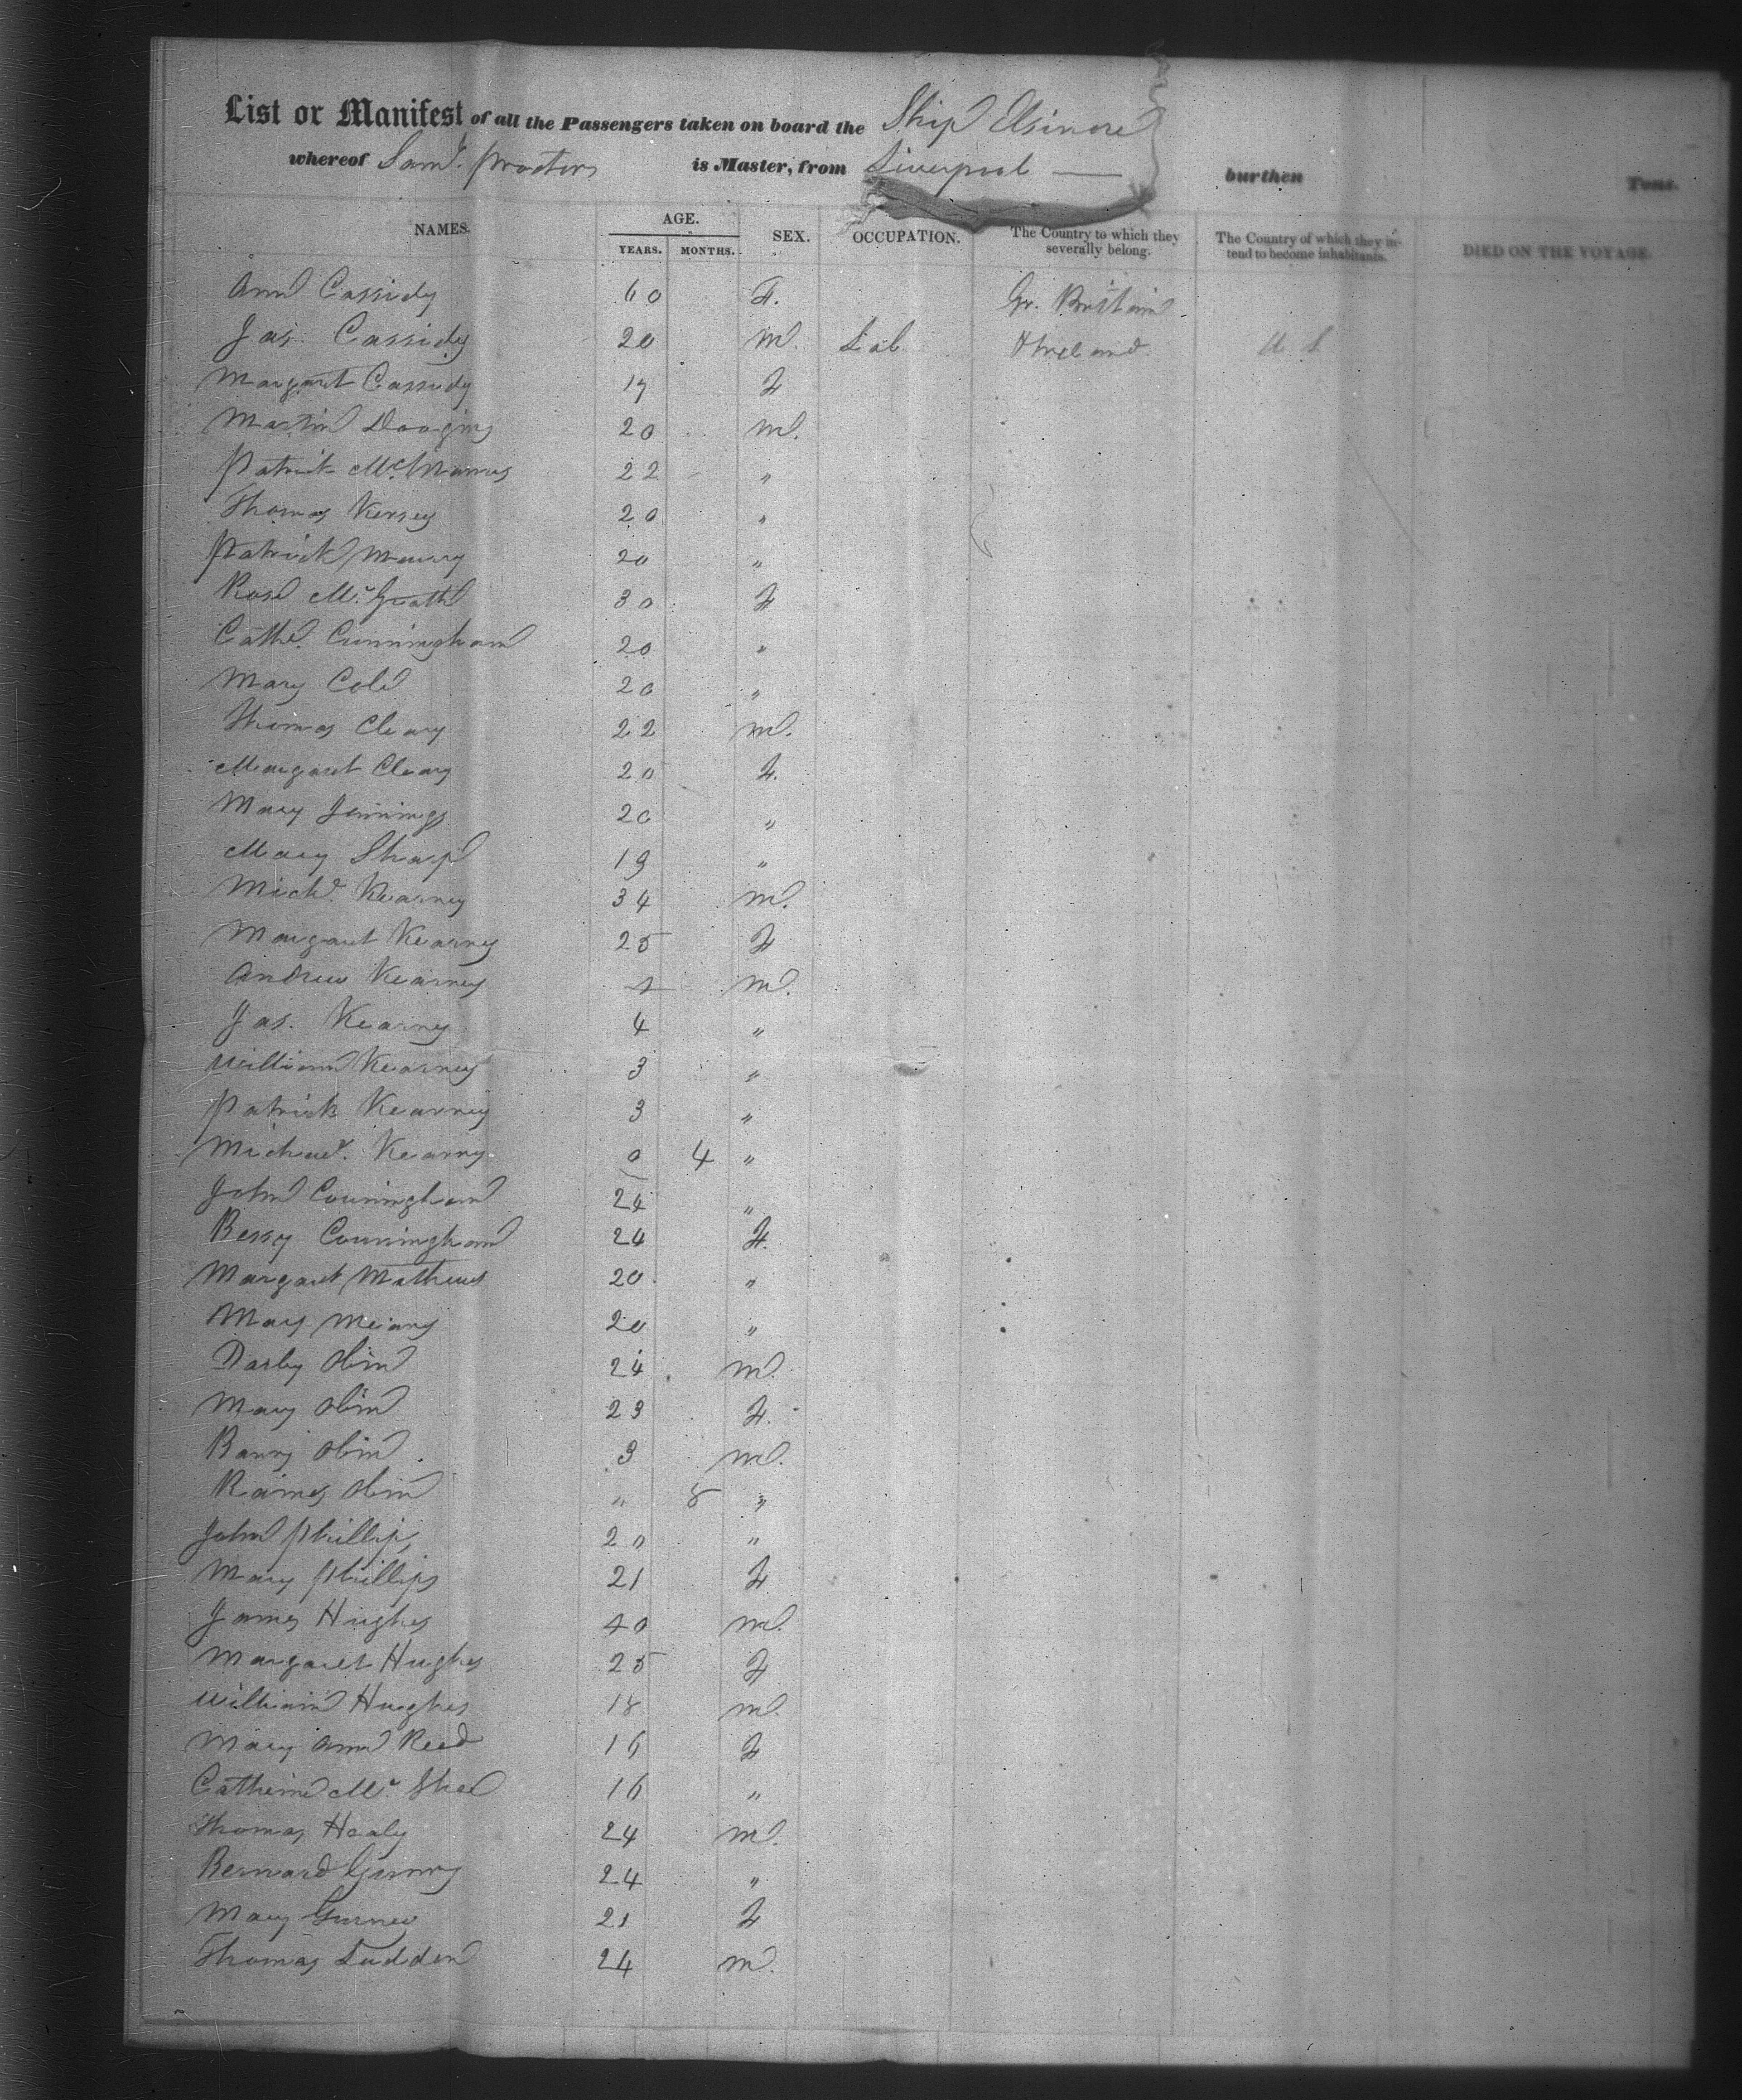 List or Manifest of all the Passengers taken on board the Ship Elsinore
whereof Saml. Proctor is Master, from Liverpool — burthen Tons.
NAMES. AGE. YEARS. MONTHS. SEX. OCCUPATION. The Country to which they severally belong. The Country of which they intend to become inhabitants. DIED ON THE VOYAGE.
Ann Cassidy 60 F. Gr. Britain
Jas. Cassidy 20 M. Lab & Ireland U S
Margaret Cassidy 17 F
Martin 20 M.
Patrick McManus 22 "
Thomas Kersey 20 "
Patrick 20 "
Rose McGrath 30 F
Cathe. Cunningham 20 "
Mary Cole 20 "
Thomas Cleary 22 M.
Margaret Cleary 20 F.
Mary Jennings 20 "
Mary Sharp 19 "
Michl. Kearney 34 M.
Margaret Kearney 25 F
Andrew Kearney M.
Jas. Kearney 4 "
William Kearney 3 "
Patrick Kearney 3 "
Michael. Kearney 0 4 "
John Cunningham 24 "
Bessy Cunningham 24 F.
Margaret Mathews 20 "
Mary 20 "
Darby 24 M.
Mary 23 F.
3 M.
" 8 "
John Phillips 20 "
Mary Phillips 21 F
James Hughes 40 M.
Margaret Hughes 25 F
William Hughes 18 M.
Mary Ann Reed 16 F
Catherine Mc 16 "
Thomas Healy 24 M.
Bernard 24 "
Mary 21 F
Thomas Ludden 24 M.